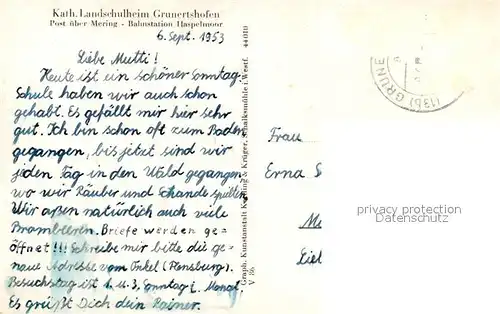 Kath. Landschulheim Grunertshofen
Post über Mering - Bahnstation Haspelmoor
6. Sept. 1953
Liebe Mutti!
Heute ist ein schöner Sonntag.
Schule haben wir auch schon
gehabt. Es gefällt mir hier sehr
gut. Ich bin schon oft zum Baden
gegangen, bis jetzt sind wir
jeden Tag in den Wald gegangen,
wo wir Räuber und Schande spielten
Wir aßen natürlich auch viele
Brombeeren. Briefe werden ge=
öffnet!!! Schreibe mir bitte die ge=
naue Adresse vom Onkel (Flensburg).
Besuchstag ist 1. u. 3. Sonntag i. Monat.
Es grüßt Dich dein Rainer.
Graph. Kunstanstalt Kuhling & Krüger, Schalksmühle i. Westf. 44010
V 86
(13b) GRUNE
Frau
Erna S
privacy protection
Datenschutz